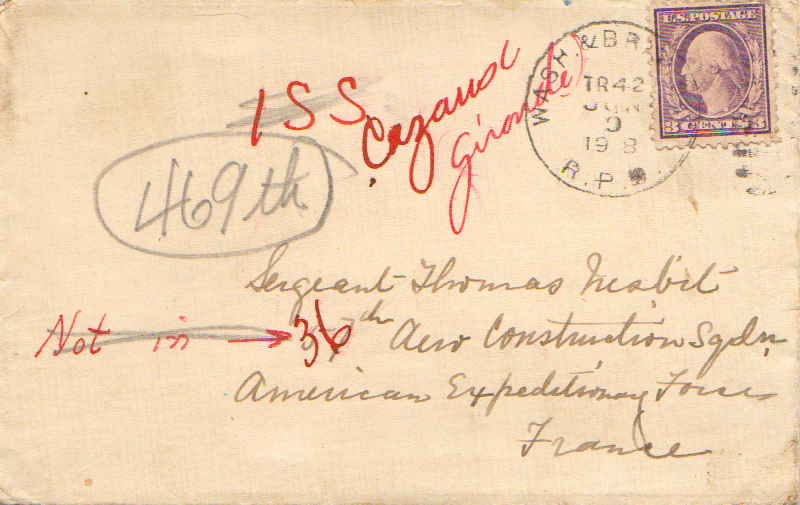 U.S. POSTAGE
3 CENTS 3
WASH. & BR
TR42
JUN
19 8
R.P.O.
ISS
Cazaux
Gironde
469th
Sergeant Thomas Nesbit
Not in → 36th Aero Construction Sqdn
American Expeditionary Forces
France